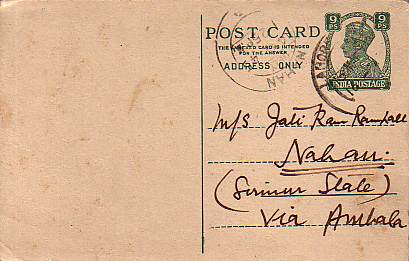 POST CARD
THE ANNEXED CARD IS INTENDED
FOR THE ANSWER
ADDRESS ONLY
9 PS 9 PS
INDIA POSTAGE
NAHAN
LAHORE
M/S Jati Ram
Nahan.
(Sirmur State)
Via Ambala